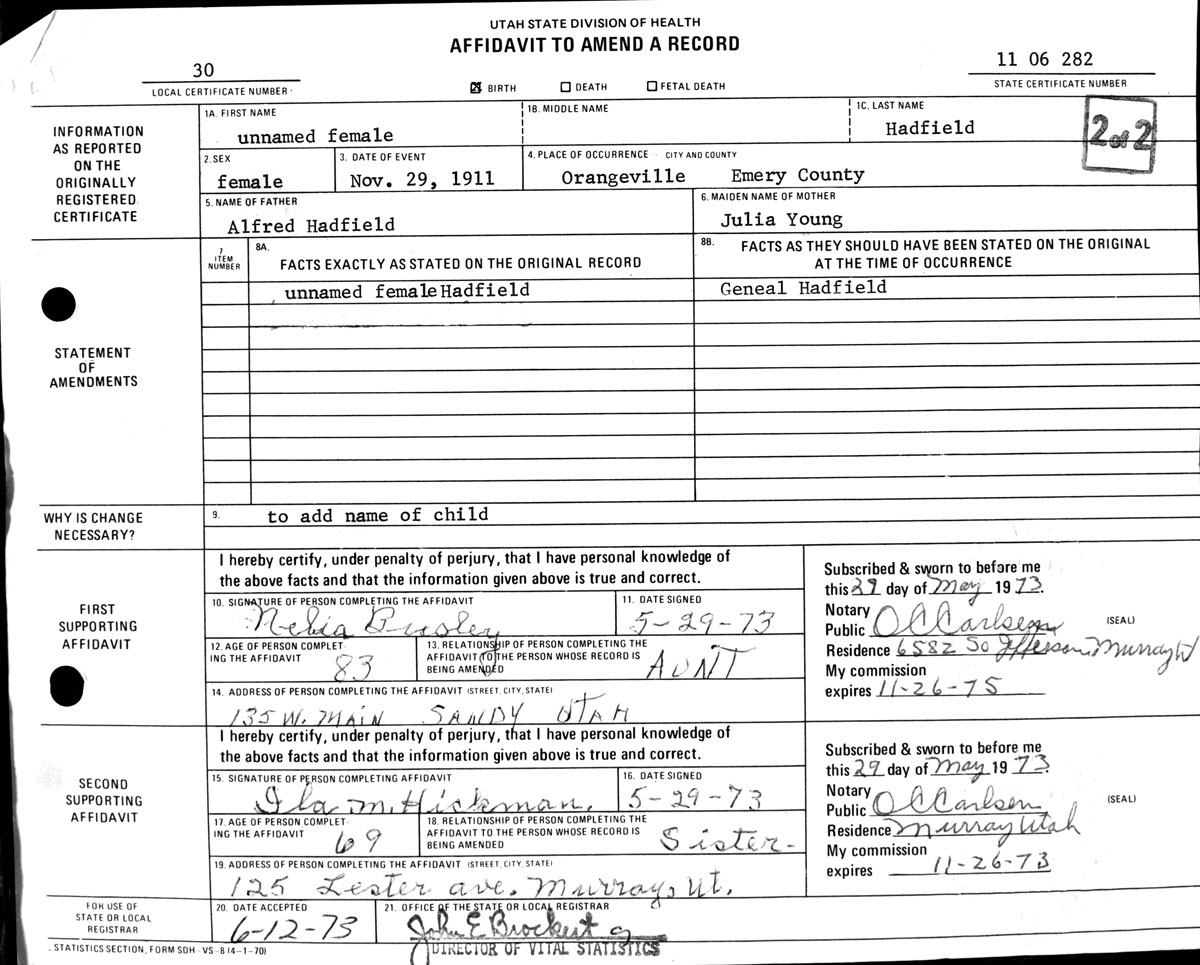 UTAH STATE DIVISION OF HEALTH
AFFIDAVIT TO AMEND A RECORD
30
LOCAL CERTIFICATE NUMBER
BIRTH DEATH FETAL DEATH
11 06 282
STATE CERTIFICATE NUMBER
2 of 2
INFORMATION
AS REPORTED
ON THE
ORIGINALLY
REGISTERED
CERTIFICATE
1A. FIRST NAME
unnamed female
1B. MIDDLE NAME
1C. LAST NAME
Hadfield
2. SEX
female
3. DATE OF EVENT
Nov. 29, 1911
4. PLACE OF OCCURRENCE CITY AND COUNTY
Orangeville Emery County
5. NAME OF FATHER
Alfred Hadfield
6. MAIDEN NAME OF MOTHER
Julia Young
STATEMENT
OF
AMENDMENTS
7
ITEM
NUMBER
8A.
FACTS EXACTLY AS STATED ON THE ORIGINAL RECORD
8B. FACTS AS THEY SHOULD HAVE BEEN STATED ON THE ORIGINAL
AT THE TIME OF OCCURRENCE
unnamed female Hadfield
Geneal Hadfield
WHY IS CHANGE
NECESSARY?
9. to add name of child
FIRST
SUPPORTING
AFFIDAVIT
I hereby certify, under penalty of perjury, that I have personal knowledge of
the above facts and that the information given above is true and correct.
10. SIGNATURE OF PERSON COMPLETING THE AFFIDAVIT
11. DATE SIGNED
5-29-73
12. AGE OF PERSON COMPLET-
ING THE AFFIDAVIT 83
13. RELATIONSHIP OF PERSON COMPLETING THE
AFFIDAVIT TO THE PERSON WHOSE RECORD IS
BEING AMENDED AUNT
14. ADDRESS OF PERSON COMPLETING THE AFFIDAVIT (STREET, CITY, STATE)
135 W. MAIN SANDY UTAH
Subscribed & sworn to before me
this 29 day of May 1973.
Notary
Public O C Carlsen
(SEAL)
Residence 6582 So Jefferson, Murray Ut
My commission
expires 11-26-75
SECOND
SUPPORTING
AFFIDAVIT
I hereby certify, under penalty of perjury, that I have personal knowledge of
the above facts and that the information given above is true and correct.
15. SIGNATURE OF PERSON COMPLETING AFFIDAVIT
Ila M. Hickman.
16. DATE SIGNED
5-29-73
17. AGE OF PERSON COMPLET-
ING THE AFFIDAVIT 69
18. RELATIONSHIP OF PERSON COMPLETING THE
AFFIDAVIT TO THE PERSON WHOSE RECORD IS
BEING AMENDED Sister-
19. ADDRESS OF PERSON COMPLETING THE AFFIDAVIT (STREET, CITY, STATE)
125 Lester ave. Murray, Ut.
Subscribed & sworn to before me
this 29 day of May 1973.
Notary
Public O C Carlsen
(SEAL)
Residence Murray Utah
My commission
expires 11-26-73
FOR USE OF
STATE OR LOCAL
REGISTRAR
20. DATE ACCEPTED
6-12-73
21. OFFICE OF THE STATE OR LOCAL REGISTRAR
John E Brockert
DIRECTOR OF VITAL STATISTICS
STATISTICS SECTION, FORM SDH-VS-8 (4-1-70)